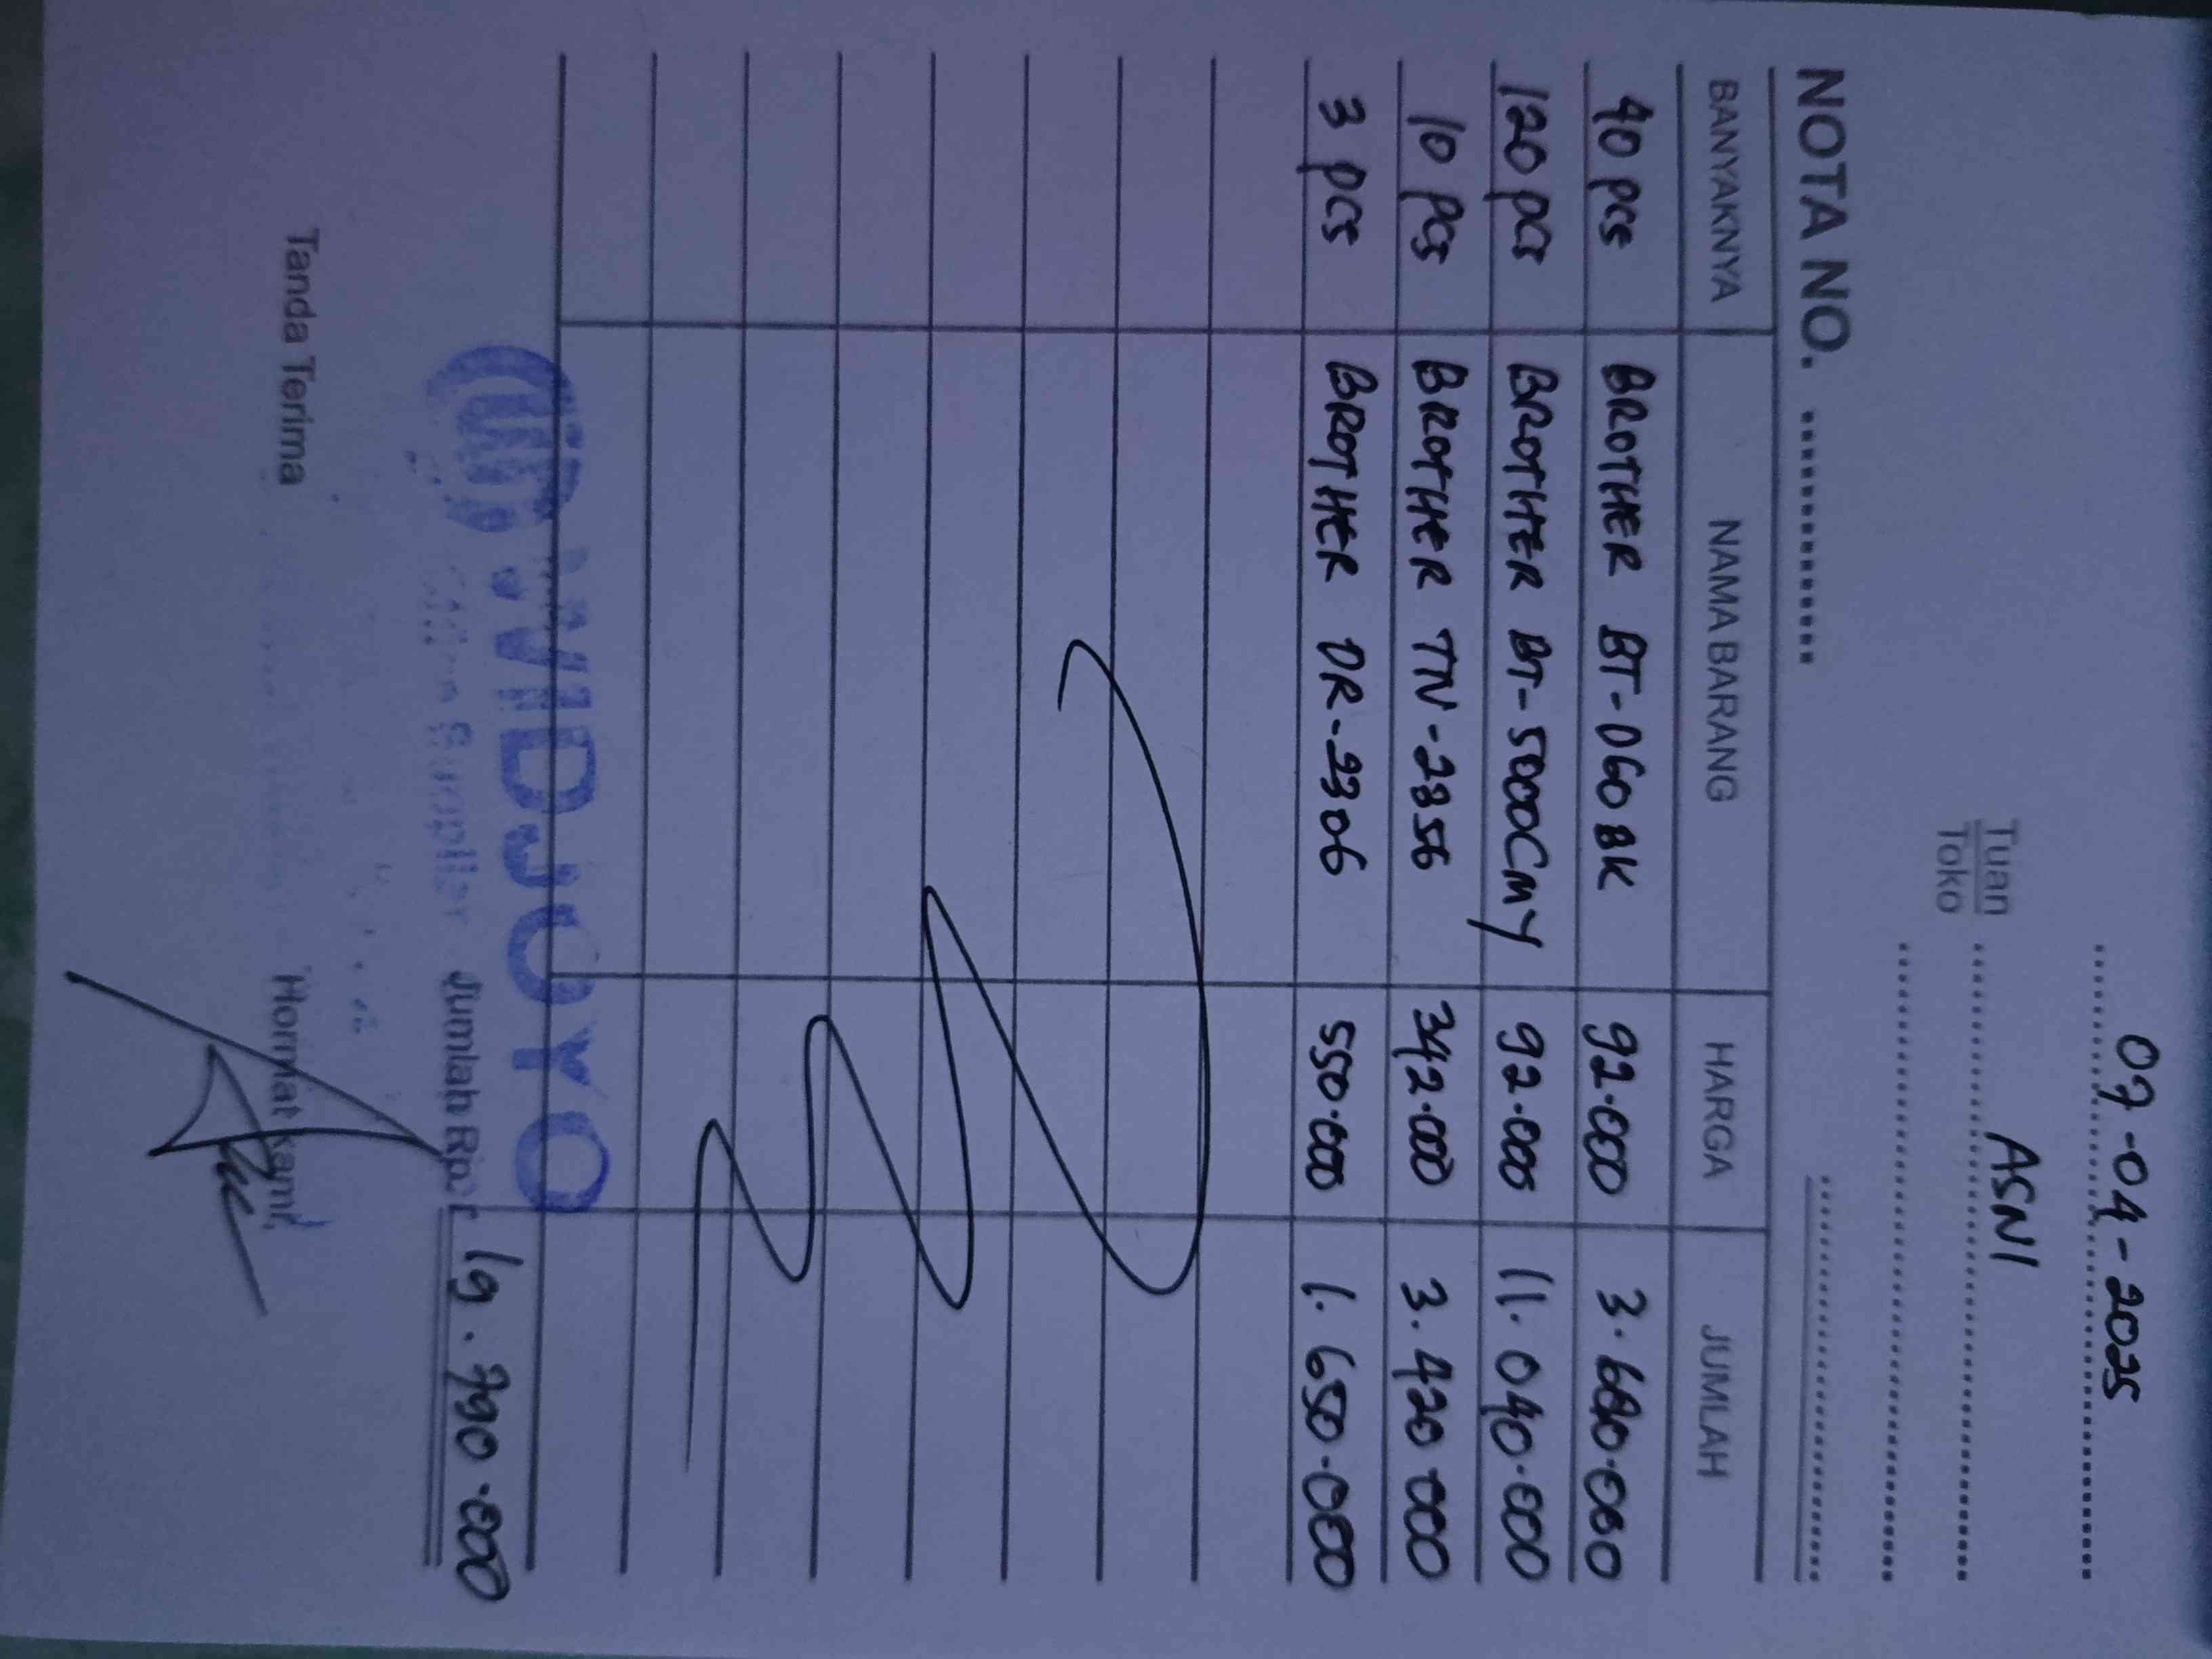 07-04-2025
Tuan
Toko
ASNI
NOTA NO.
BANYAKNYA NAMA BARANG HARGA JUMLAH
40 pcs BROTHER BT-D60BK 92.000 3.680.000
120 pcs BROTHER BT-5000CMY 92.000 11.040.000
10 pcs BROTHER TN-2356 342.000 3.420.000
3 pcs BROTHER DR-2306 550.000 1.650.000
WIDJOYO
Office Supplier
Jumlah Rp. 19.790.000
Tanda Terima Hormat kami,